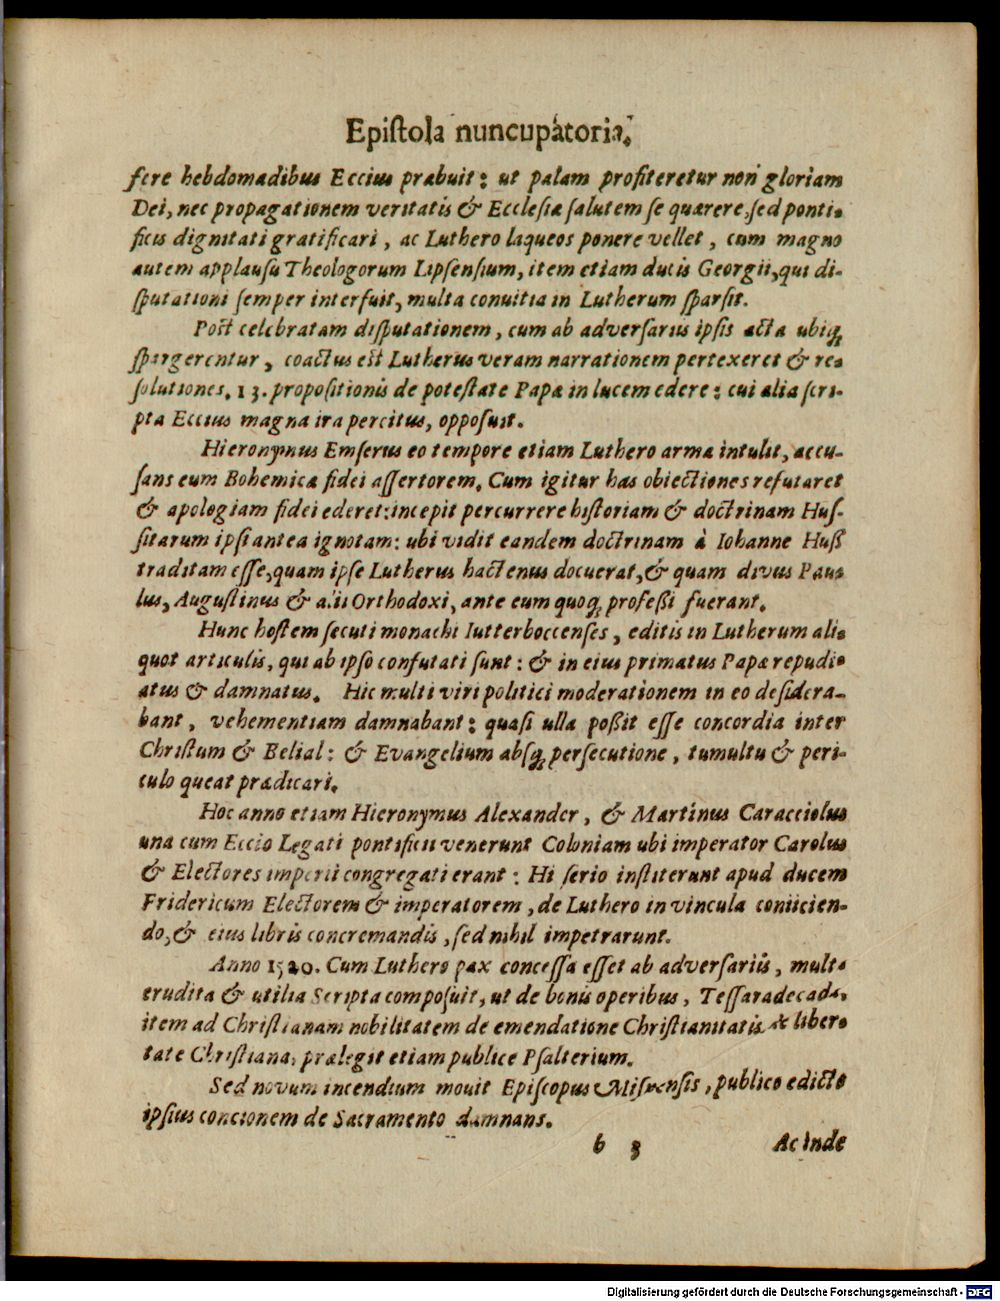 Epistola nuncupatoria.
fere hebdomadibus Eccius præbuit: ut palam profiteretur non gloriam
Dei, nec propagationem veritatis & Ecclesiæ salutem se quærere, sed ponti-
ficis dignitati gratificari, ac Luthero laqueos ponere vellet, cum magno
autem applausu Theologorum Lipsensium, item etiam ducis Georgii, qui di-
sputationi semper interfuit, multa convitia in Lutherum sparsit.
Post celebratam disputationem, cum ab adversariis ipsis acta ubiq́
spargerentur, coactus est Lutherus veram narrationem pertexeret & re-
solutiones. 13. propositionis de potestate Papæ in lucem edere: cui alia scri-
pta Eccius magna ira percitus, opposuit.
Hieronymus Emserus eo tempore etiam Luthero arma intulit, accu-
sans eum Bohemicæ fidei assertorem. Cum igitur has obiectiones refutaret
& apologiam fidei ederet: incepit percurrere historiam & doctrinam Hus-
sitarum ipsi antea ignotam: ubi vidit eandem doctrinam à Iohanne Huß
traditam esse, quam ipse Lutherus hactenus docuerat, & quam divus Pau-
lus, Augustinus & alii Orthodoxi, ante eum quoq́ profeßi fuerant.
Hunc hostem secuti monachi Iutterboccenses, editis in Lutherum ali-
quot articulis, qui ab ipso confutati sunt: & in eius primatus Papæ repudi-
atus & damnatus. Hic multi viri politici moderationem in eo desidera-
bant, vehementiam damnabant: quasi ulla poßit esse concordia inter
Christum & Belial: & Evangelium absq́ persecutione, tumultu & peri-
culo queat prædicari.
Hoc anno etiam Hieronymus Alexander, & Martinus Caracciolus
una cum Eccio Legati pontificii venerunt Coloniam ubi imperator Carolus
& Electores imperii congregati erant: Hi serio institerunt apud ducem
Fridericum Electorem & imperatorem, de Luthero in vincula coniicien-
do, & eius libris concremandis, sed nihil impetrarunt.
Anno 1520. Cum Luthero pax concessa esset ab adversariis, multa
erudita & utilia Scripta composuit, ut de bonis operibus, Tessaradecada,
item ad Christianam nobilitatem de emendatione Christianitatis de liber-
tate Christiana, prælegit etiam publice Psalterium.
Sed novum incendium movit Episcopus Misnensis, publico edicto
ipsius concionem de Sacramento damnans.
b 3 Ac inde
Digitalisierung gefördert durch die Deutsche Forschungsgemeinschaft - DFG